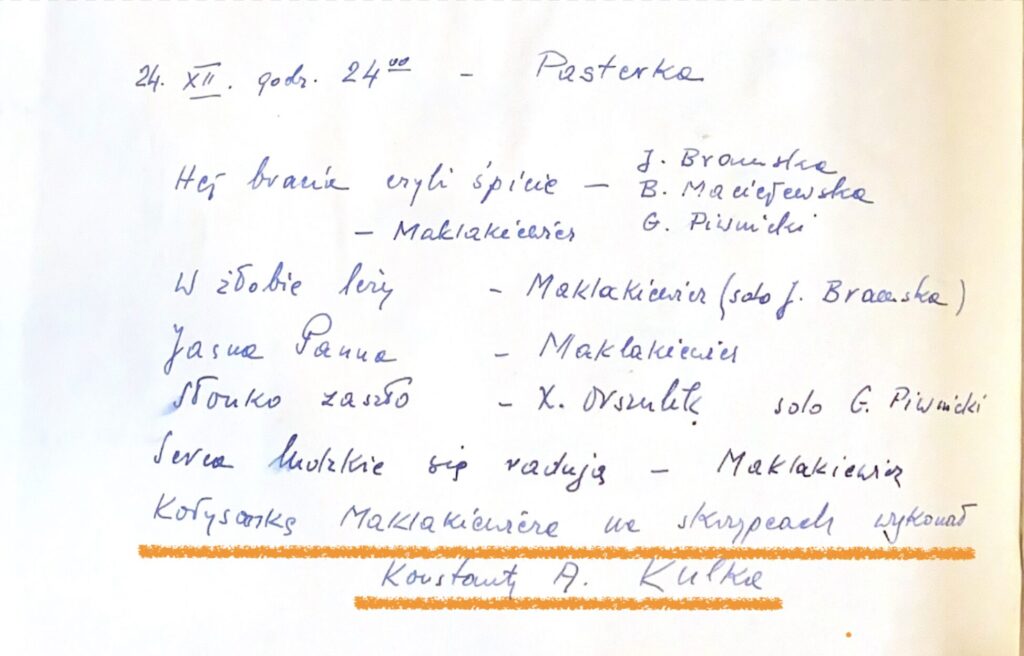 24. XII. godz. 24⁰⁰ - Pasterka
Hej bracia czyli śpicie - J. Bramska
B. Maciejewska
- Maklakiewicz G. Piwnicki
W żłobie leży - Maklakiewicz (solo J. Bramska)
Jasna Panna - Maklakiewicz
Słonko zaszło - X. Orszulik solo G. Piwnicki
Serca ludzkie się radują - Maklakiewicz
Kołysankę Maklakiewicza na skrzypcach wykonał
Konstanty A. Kulka